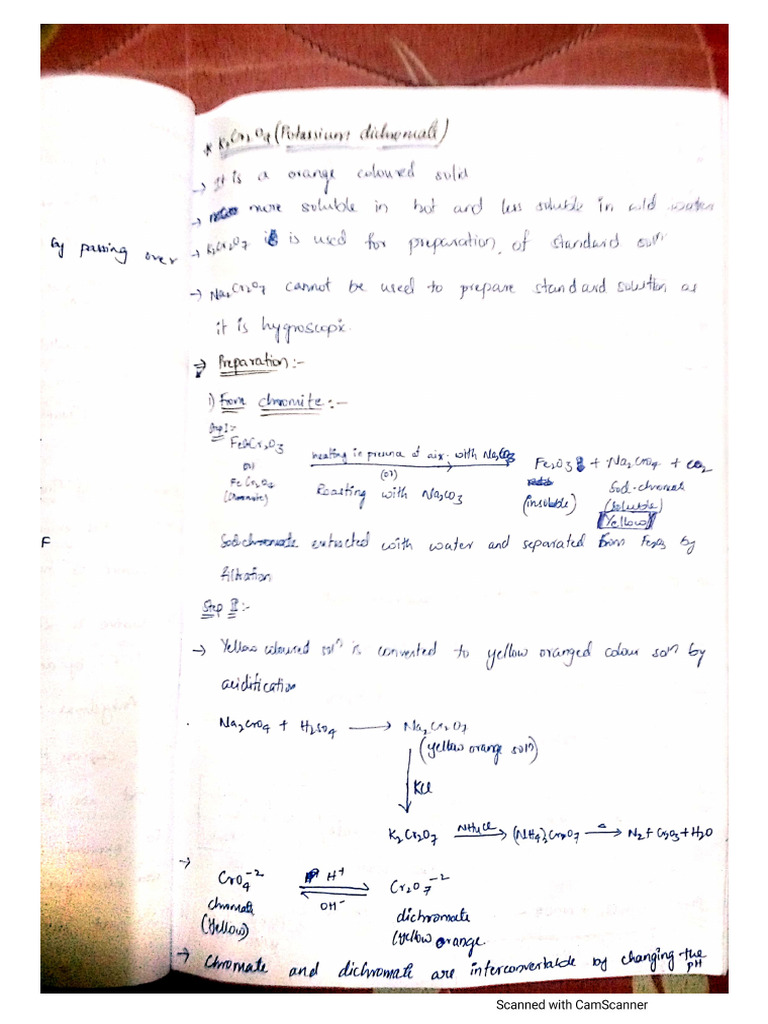 by passing over
F
* K2Cr2O7 (Potassium dichromate)
→ It is a orange coloured solid
→ more soluble in hot and less soluble in cold water
→ K2Cr2O7 is used for preparation of standard solⁿ
→ Na2Cr2O7 cannot be used to prepare standard solution as
it is hygroscopic.
→ Preparation :-
i) From chromite :-
Step I :-
FeOCr2O3 (or) FeCr2O4 (chromate) heating in presence of air with Na2CO3 (or) Roasting with Na2CO3 → Fe2O3 (insoluble) + Na2CrO4 + CO2
Sod-chromate (soluble) Yellow
Sod chromate extracted with water and separated from Fe2O3 by
filtration
Step II :-
→ Yellow coloured solⁿ is converted to yellow oranged colour solⁿ by
acidification
Na2CrO4 + H2SO4 → Na2Cr2O7
(yellow orange solⁿ)
↓ KCl
K2Cr2O7 NH4Cl → (NH4)2Cr2O7 Δ → N2 + Cr2O3 + H2O
→
CrO4⁻² H⁺ ⇌ OH⁻ Cr2O7⁻²
chromate dichromate
(Yellow) (Yellow orange
→ Chromate and dichromate are interconvertable by changing the
pH
Scanned with CamScanner